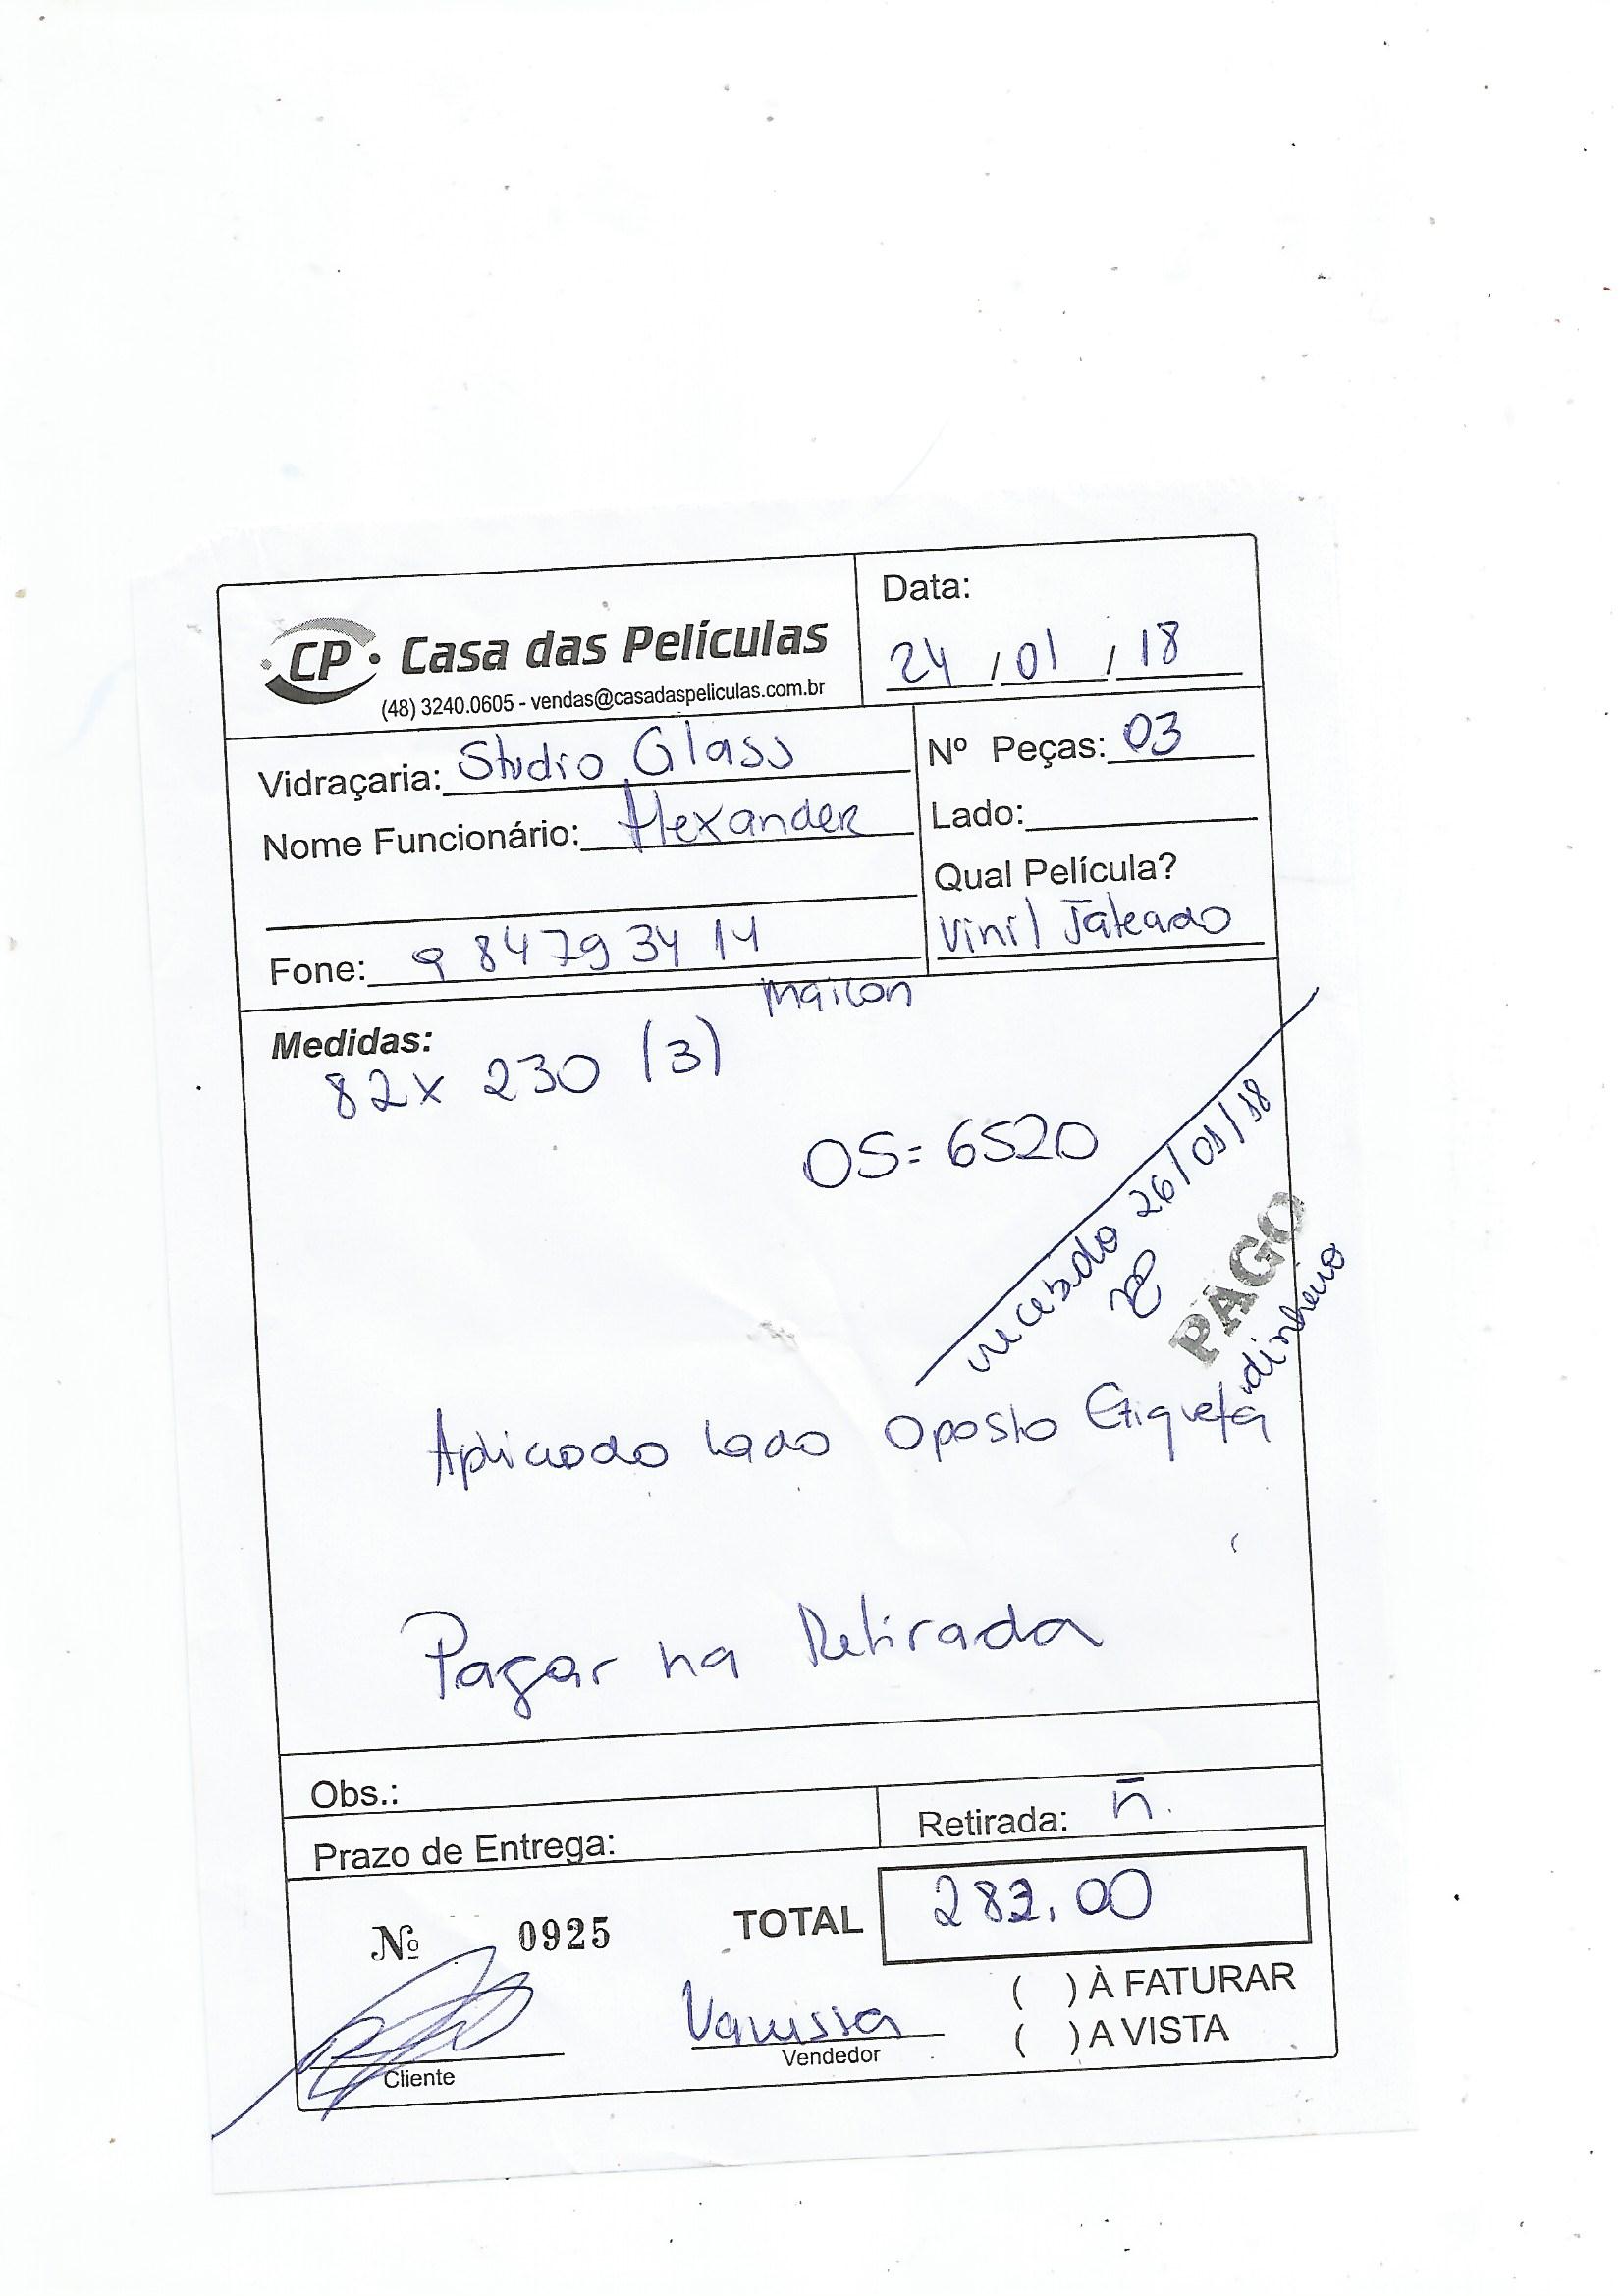 CP Casa das Películas
(48) 3240.0605 - vendas@casadaspeliculas.com.br
Data:
24/01/18
Vidraçaria: Studio Glass
Nº Peças: 03
Nome Funcionário: Alexander
Lado:
Qual Película?
Vinil Jateado
Fone: 9 8479 3414
Maicon
Medidas:
82x 230 (3)
OS= 6520
recebido 26/01/18
PAGO
dinheiro
Aplicado Lado Oposto Etiqueta
Pagar na Retirada
Obs.:
Prazo de Entrega:
Retirada: ñ.
Nº 0925
TOTAL 282,00
( ) À FATURAR
( ) A VISTA
Vanessa
Vendedor
Cliente